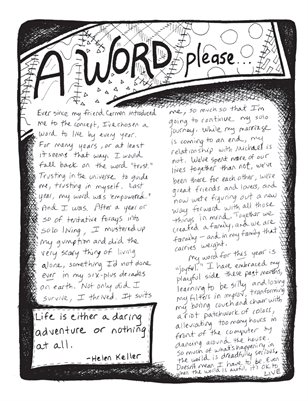 A WORD please...
Ever since my friend Carmen introduced
me to the concept, I've chosen a
word to live by every year.
For many years, or at least
it seems that way, I would
fall back on the word "trust."
Trusting in the universe, to guide
me, trusting in myself. Last
year, my word was "empowered."
And I was. After a year or
so of tentative forays into
solo living, I mustered up
my gumption and did the
very scary thing of living
alone, something I'd not done
ever in my six-plus decades
on earth. Not only did I
survive, I thrived. It suits
me, so much so that I'm
going to continue my solo
journey. While my marriage
is coming to an end, my
relationship with Michael is
not. We've spent more of our
lives together than not, we've
been there for each other, we're
great friends and loves, and
now we're figuring out a new
way forward with all those
things in mind. Together we
created a family, and we are
family — and in my family that
carries weight.
My word for this year is
"joyful." I have embraced my
playful side these past months,
learning to be silly and losing
my filters in improv, transforming
my boring couch and chair with
a riot patchwork of colors,
alleviating too many hours in
front of the computer by
dancing around the house.
So much of what's happening in
the world is dreadfully serious,
Doesn't mean I have to be. Even
when the world is awful, it's OK to
LIVE
Life is either a daring
adventure or nothing
at all.
-Helen Keller